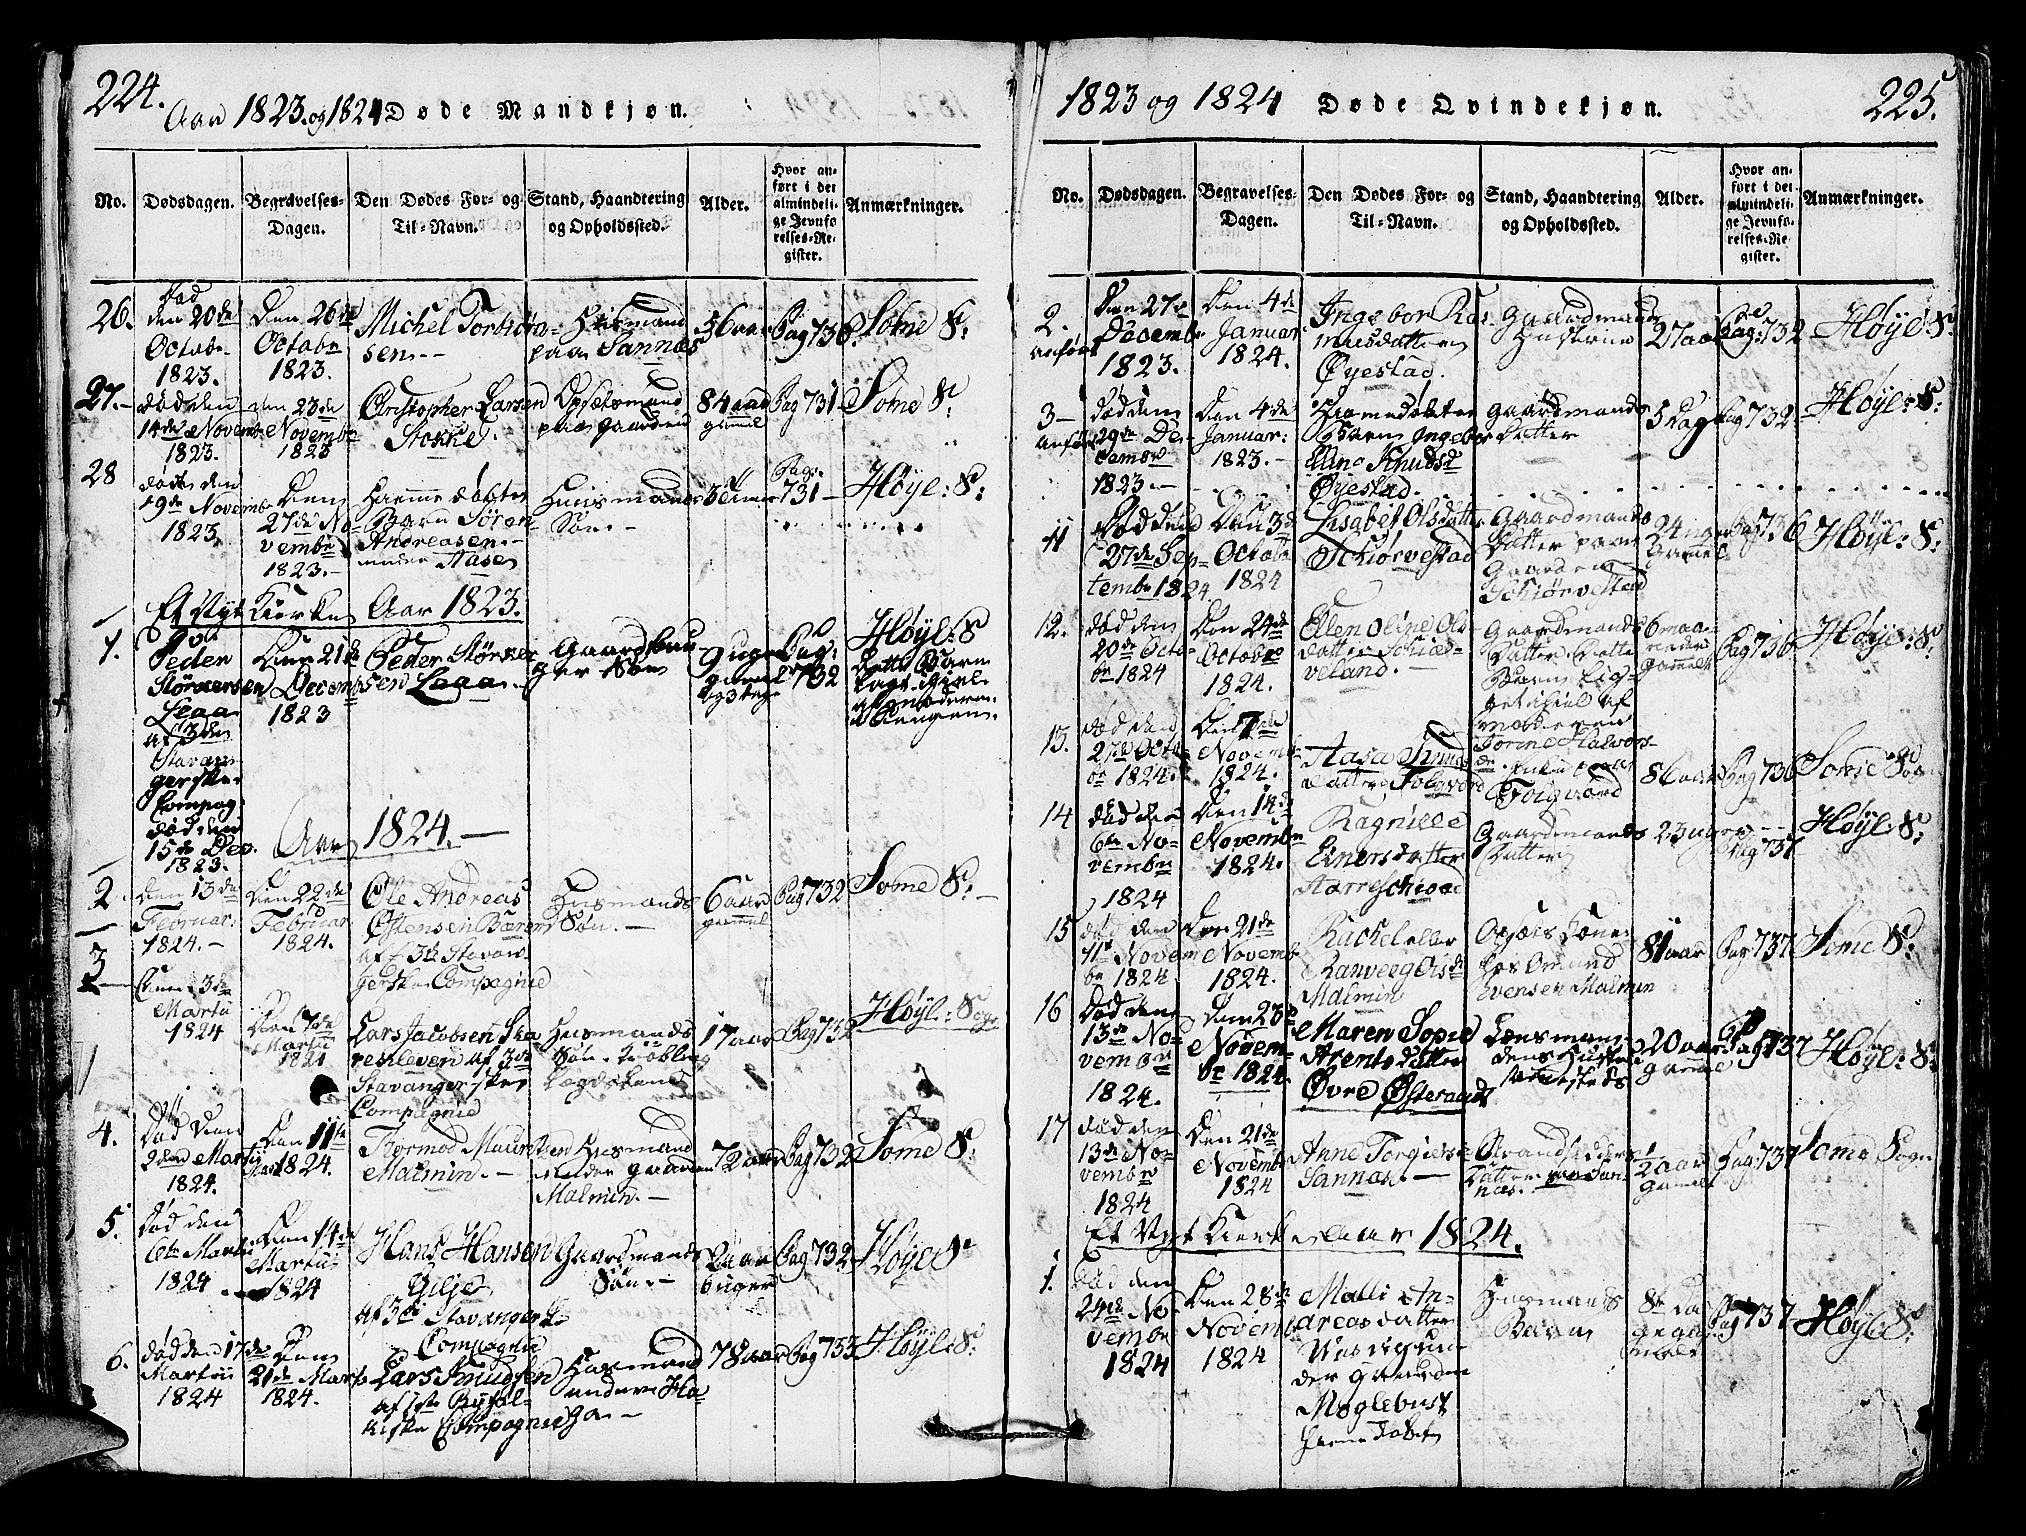 224.
Aar 1823. og 1824 Døde Mandkjøn.
No.
Dødsdagen.
Begravelses-
Dagen.
Den Dødes For- og
Til-Navn.
Stand, Haandtering
og Opholdssted.
Alder.
Hvor an-
ført i det
almindeli-
ge Jevnfø-
relses-Re-
gister.
Anmærkninger.
26.
Død
den 20de
Octobr
1823.
Den 26de
Octobr
1823.
Michel Torbiörn-
sen
Huusmand
paa Sannæs
56 aar
Pag 736
Some S:
27.
død den
14de Novemb
1823.
den 23de
Novembr
1823
Christopher Larsen
Stokke.
84 aar
gamel
Pag 731
Some S:
28
døde den
19de Novembr
1823.
Den
27de No-
vembr
1823.
Hiemme døbte
Barn Søren
Andreasen
Aase
Huusmands
Søn.
Pag:
731
Høyl: S:
Et Nyt Kierke Aar 1823.
1.
Peder
Størkersen
Leaa
af 3die
Stavan-
gerske
Compag
død den
15de Dec.
1823.
Den 21de
Decemb
1823
Peder Størker
sen Leaa
Pag:
732
Høyl: S
Dette Barn
Aar 1824.
2.
Den 13de
Februar:
1824.
Den 22de
Februar
1824.
Ole Andreas
Østensen
af 3die Stavan-
gerske Compagnie
Husmands
Søn.
6 aar
gammel
Pag 732
Some S:
3
Den 3de
Martii
1824
Den 7de
Martii
1824
Lars Jacobsen Ska
reskleven af 3die
Stavangerske
Compagnie
Husmands
Søn
17 aar
Pag 732
Høyl: Sogn
4.
Død Den
2den Martii
1824.
Den 11te
1824.
Tormod
Malmin.
Husmand
under gaarden
Malmin.
72 aar
Pag 732
Some S:
5.
Død den
6te Martii
1824
Den 14de
Martii
1824
Hans Hansen
Gilje
af 3die Stavangerske
Compagnie
Gaardmands
Søn.
2 aar
6 uger
Pag 732
Høyl S
6.
død den 17de
Martii
1824
Den
21de Marts
1824.
Lars Knudsen
af 1ste Ryfyl-
kiske Compagnie
Husmand
under Ha-
ga.
78 aar
Pag 733
Høyl: S:
1823 og 1824 Døde Qvindekjøn.
225.
No.
Dødsdagen.
Begravelses-
Dagen.
Den Dødes For- og
Til-Navn.
Stand, Haandtering
og Opholdssted.
Alder.
Hvor an-
ført i det
almindeli-
ge Jevnfø-
relses-Re-
gister.
Anmærkninger.
2.
anført
Den 27de
Decembr
1823.
Den 4de
Januar
1824.
Ingebor Ras-
musdatter
Øyestad.
Gaardmands
Hustrue
27 aar
Pag: 732
Høyl S:
3
anført
død den
29de De-
cembr
1823.
Den 4de
Januar:
1823.
Hiemedøbte
Barn Ingebor
Elina Knudsd
Øyestad.
Gaardmands
Datter
5 Dag
Pag 732
Høyl: S:
11
Død den
27de Sep-
tembr 1824
Den 3de
Octob
1824
Lisabet Olsdatter
Schiørvestad
Gaardmands
Datter paa
Gaarden
Schiørvestad
gamel
Pag 736
Høyl: S:
12.
død den
20de Octo-
br 1824
Den 24de
Octobr
1824.
Ellen Oline Ols
datter Schiæd-
veland.
Gaardmands
Datter Dette
Barn lig-
get ihiel af
moderen
6 maa-
neder
gammel
Pag 736
Høyl: S:
13.
død den
27de Octo-
br 1824.
Den 7de
Novemb
1824.
Aasa Knuds
datter Folgvord
Torine Halvors-
dr. Enke paa
Folgvord
86 aar
Pag 736
Some Sogn
14
død den
6te No-
vembr
1824
Den 14de
Novembr
1824.
Ragnille
Einersdatter
Gaardmands
Datter
23 uger
Pag 737
Høyl: S:
15
død den
11te Novem
br 1824
Den 21de
Novemb
1824.
Rachel eller
Ranveeg Olsd
Malmin
hos Omund
Evensen Malmin
81 aar
Pag 737
Some S:
16
Død den
13de No-
vembr
1824.
Den 23de
Novem-
br 1824
Maren Sopie
Arentsdatter
Øvre Østeraadt
Lensman-
dens Hustrue
20 aar
gamel
Pag 737
Høyl: S:
17
død den
13de No-
vembr
1824
Den 21de
Novembr
1824
Anne Torgiers
Sannæs.
Strandsidders
Datter paa San-
næs.
2 aar
gamel
Pag: 737
Some Sogn
Et Nyt Kierke Aar 1824.
1.
død den
24de No-
vembr
1824
Den 28de
Novemb
1824
Malli An-
dreasdatter
un-
der gaarden
Møglebust
hiemedøbt
Husmands
Barn
8te Da
ge ga-
mel
Pag 737
Høyl S: